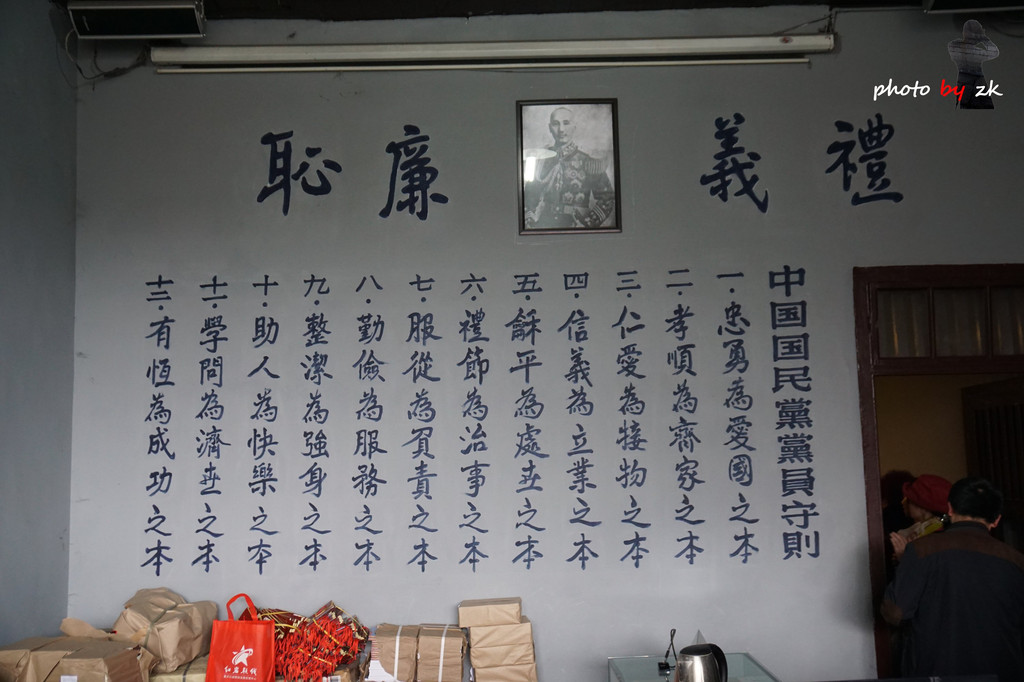 禮義廉恥
中国国民黨黨員守則
一·忠勇為愛國之本
二·孝順為齊家之本
三·仁愛為接物之本
四·信義為立業之本
五·龢平為處世之本
六·禮節為治事之本
七·服從為負責之本
八·勤儉為服務之本
九·整潔為強身之本
十·助人為快樂之本
十一·學問為濟世之本
十二·有恆為成功之本
photo by zk